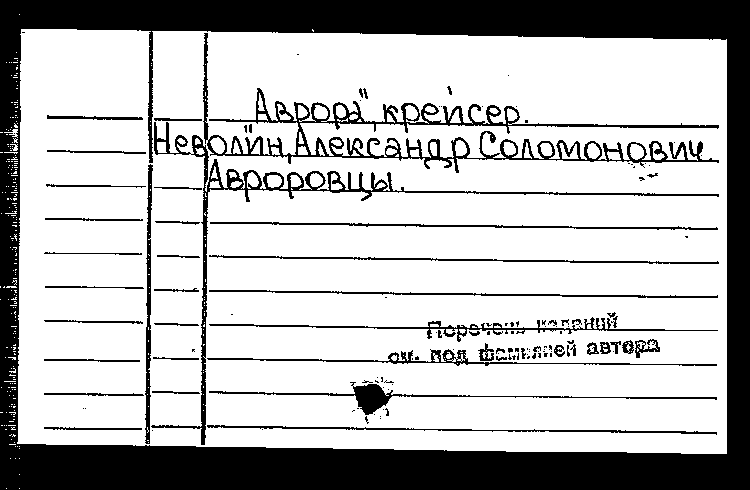 Аврора", крейсер.
Неволин, Александр Соломонович.
Авроровцы.
Перечень изданий
см. под фамилией автора